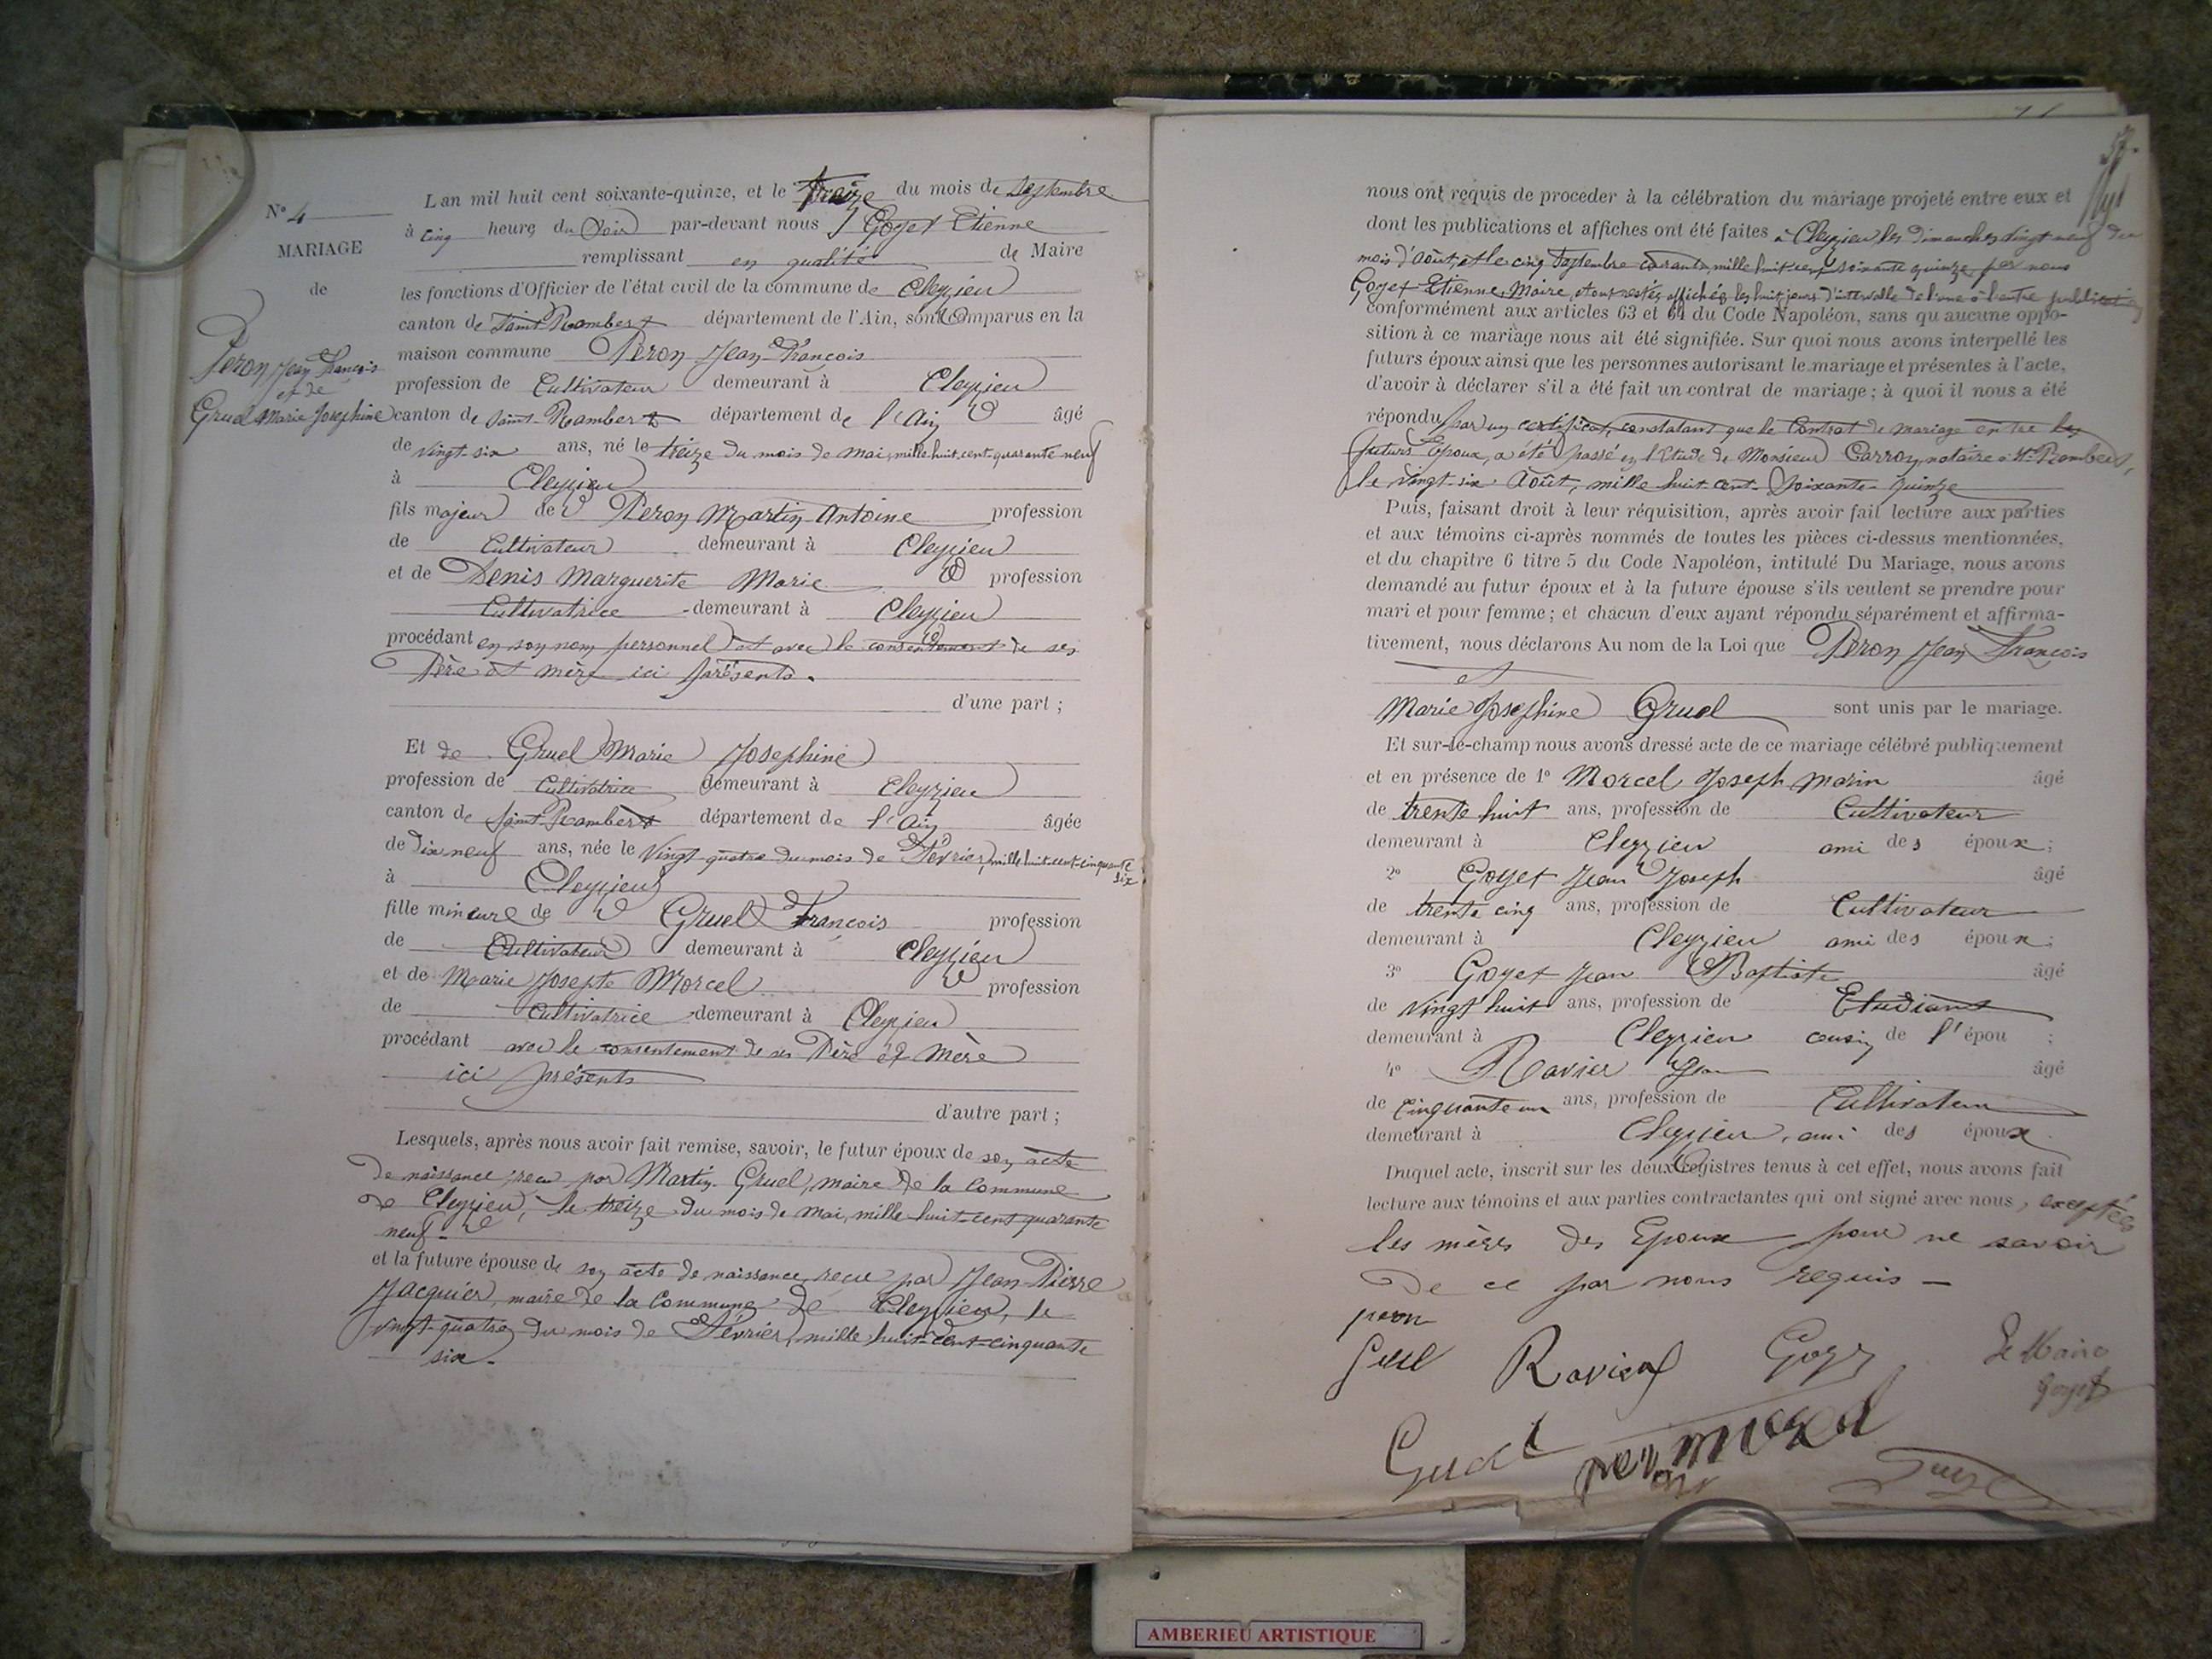 N° 4
MARIAGE
de
Peron Jean François
et de
Gruel Marie Josephine
L'an mil huit cent soixante-quinze, et le treize du mois de Septembre
à cinq heure du Soir par-devant nous Goyet Etienne
remplissant en qualité de Maire
les fonctions d'Officier de l'état civil de la commune de Cleyzieu
canton de Saint-Rambert département de l'Ain, sont Comparus en la
maison commune Peron Jean-François
profession de Cultivateur demeurant à Cleyzieu
canton de Saint-Rambert département de l'Ain âgé
de vingt-six ans, né le treize du mois de mai, mille huit-cent-quarante neuf
à Cleyzieu
fils majeur de Peron Martin-Antoine profession
de Cultivateur demeurant à Cleyzieu
et de Denis Marguerite Marie profession
Cultivatrice demeurant à Cleyzieu
procédant en son nom personnel et avec le consentement de ses
Père et mère ici présents.
d'une part ;
Et de Gruel Marie Josephine
profession de Cultivatrice demeurant à Cleyzieu
canton de Saint-Rambert département de l'Ain âgée
de dix neuf ans, née le vingt-quatre du mois de Février, mille huit-cent-cinquante
six
à Cleyzieu
fille mineure de Gruel François profession
de Cultivateur demeurant à Cleyzieu
et de Marie Josepte Morcel profession
de Cultivatrice demeurant à Cleyzieu
procédant avec le consentement de ses Père et Mère
ici présents
d'autre part ;
Lesquels, après nous avoir fait remise, savoir, le futur époux de son acte
de naissance, reçu par Martin Gruel, maire de la Commune
de Cleyzieu, le treize du mois de mai, mille huit-cent quarante
neuf.
et la future épouse de son acte de naissance, reçu par Jean-Pierre
Jacquier, maire de la Commune de Cleyzieu, le
vingt-quatre du mois de Février, mille huit-cent-cinquante
six.
nous ont requis de proceder à la célébration du mariage projeté entre eux et
dont les publications et affiches ont été faites à Cleyzieu, les Dimanches vingt neuf du
mois d'août, et le cinq Septembre courant, mille huit-cent soixante quinze, par nous
Goyet Etienne Maire, et ont restés affichés les huit jours d'intervalle de l'une à l'autre publication
conformément aux articles 63 et 64 du Code Napoléon, sans qu'aucune oppo-
sition à ce mariage nous ait été signifiée. Sur quoi nous avons interpellé les
futurs époux ainsi que les personnes autorisant le mariage et présentes à l'acte,
d'avoir à déclarer s'il a été fait un contrat de mariage ; à quoi il nous a été
répondu par un certificat, constatant que le Contrat de mariage entre les
futurs Epoux, a été passé en l'étude de Monsieur Carron, notaire à St-Rambert,
le vingt-six Août, mille huit-cent-soixante-quinze
Puis, faisant droit à leur réquisition, après avoir fait lecture aux parties
et aux témoins ci-après nommés de toutes les pièces ci-dessus mentionnées,
et du chapitre 6 titre 5 du Code Napoléon, intitulé Du Mariage, nous avons
demandé au futur époux et à la future épouse s'ils veulent se prendre pour
mari et pour femme ; et chacun d'eux ayant répondu séparément et affirma-
tivement, nous déclarons Au nom de la Loi que Peron Jean François
et
Marie Josephine Gruel sont unis par le mariage.
Et sur-le-champ nous avons dressé acte de ce mariage célébré publiquement
et en présence de 1° Morcel Joseph Marin âgé
de trente huit ans, profession de Cultivateur
demeurant à Cleyzieu ami des époux ;
2° Goyet Jean Joseph âgé
de trente cinq ans, profession de Cultivateur
demeurant à Cleyzieu ami des époux ;
3° Goyet Jean Baptiste âgé
de vingt huit ans, profession de Etudiant
demeurant à Cleyzieu cousin de l'épou ;
4° Ravier Jean âgé
de Cinquante un ans, profession de Cultivateur
demeurant à Cleyzieu, ami des époux
Duquel acte, inscrit sur les deux Registres tenus à cet effet, nous avons fait
lecture aux témoins et aux parties contractantes qui ont signé avec nous, exceptées
les mères des Epoux pour ne savoir
de ce par nous requis —
peron
Ravier
Le Maire
Goyet
AMBERIEU ARTISTIQUE